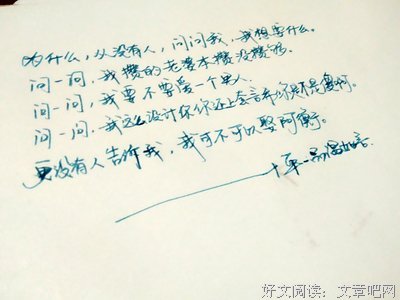 为什么,从没有人,问问我,我想要什么。
问一问,我攒的老婆本攒没攒够。
问一问,我要不要爱一个男人。
问一问,我这么设计你你还上套言希你是不是傻啊。
更没有人告诉我,我可不可以娶阿衡。
——十年一品温如言
好文阅读:文章吧网